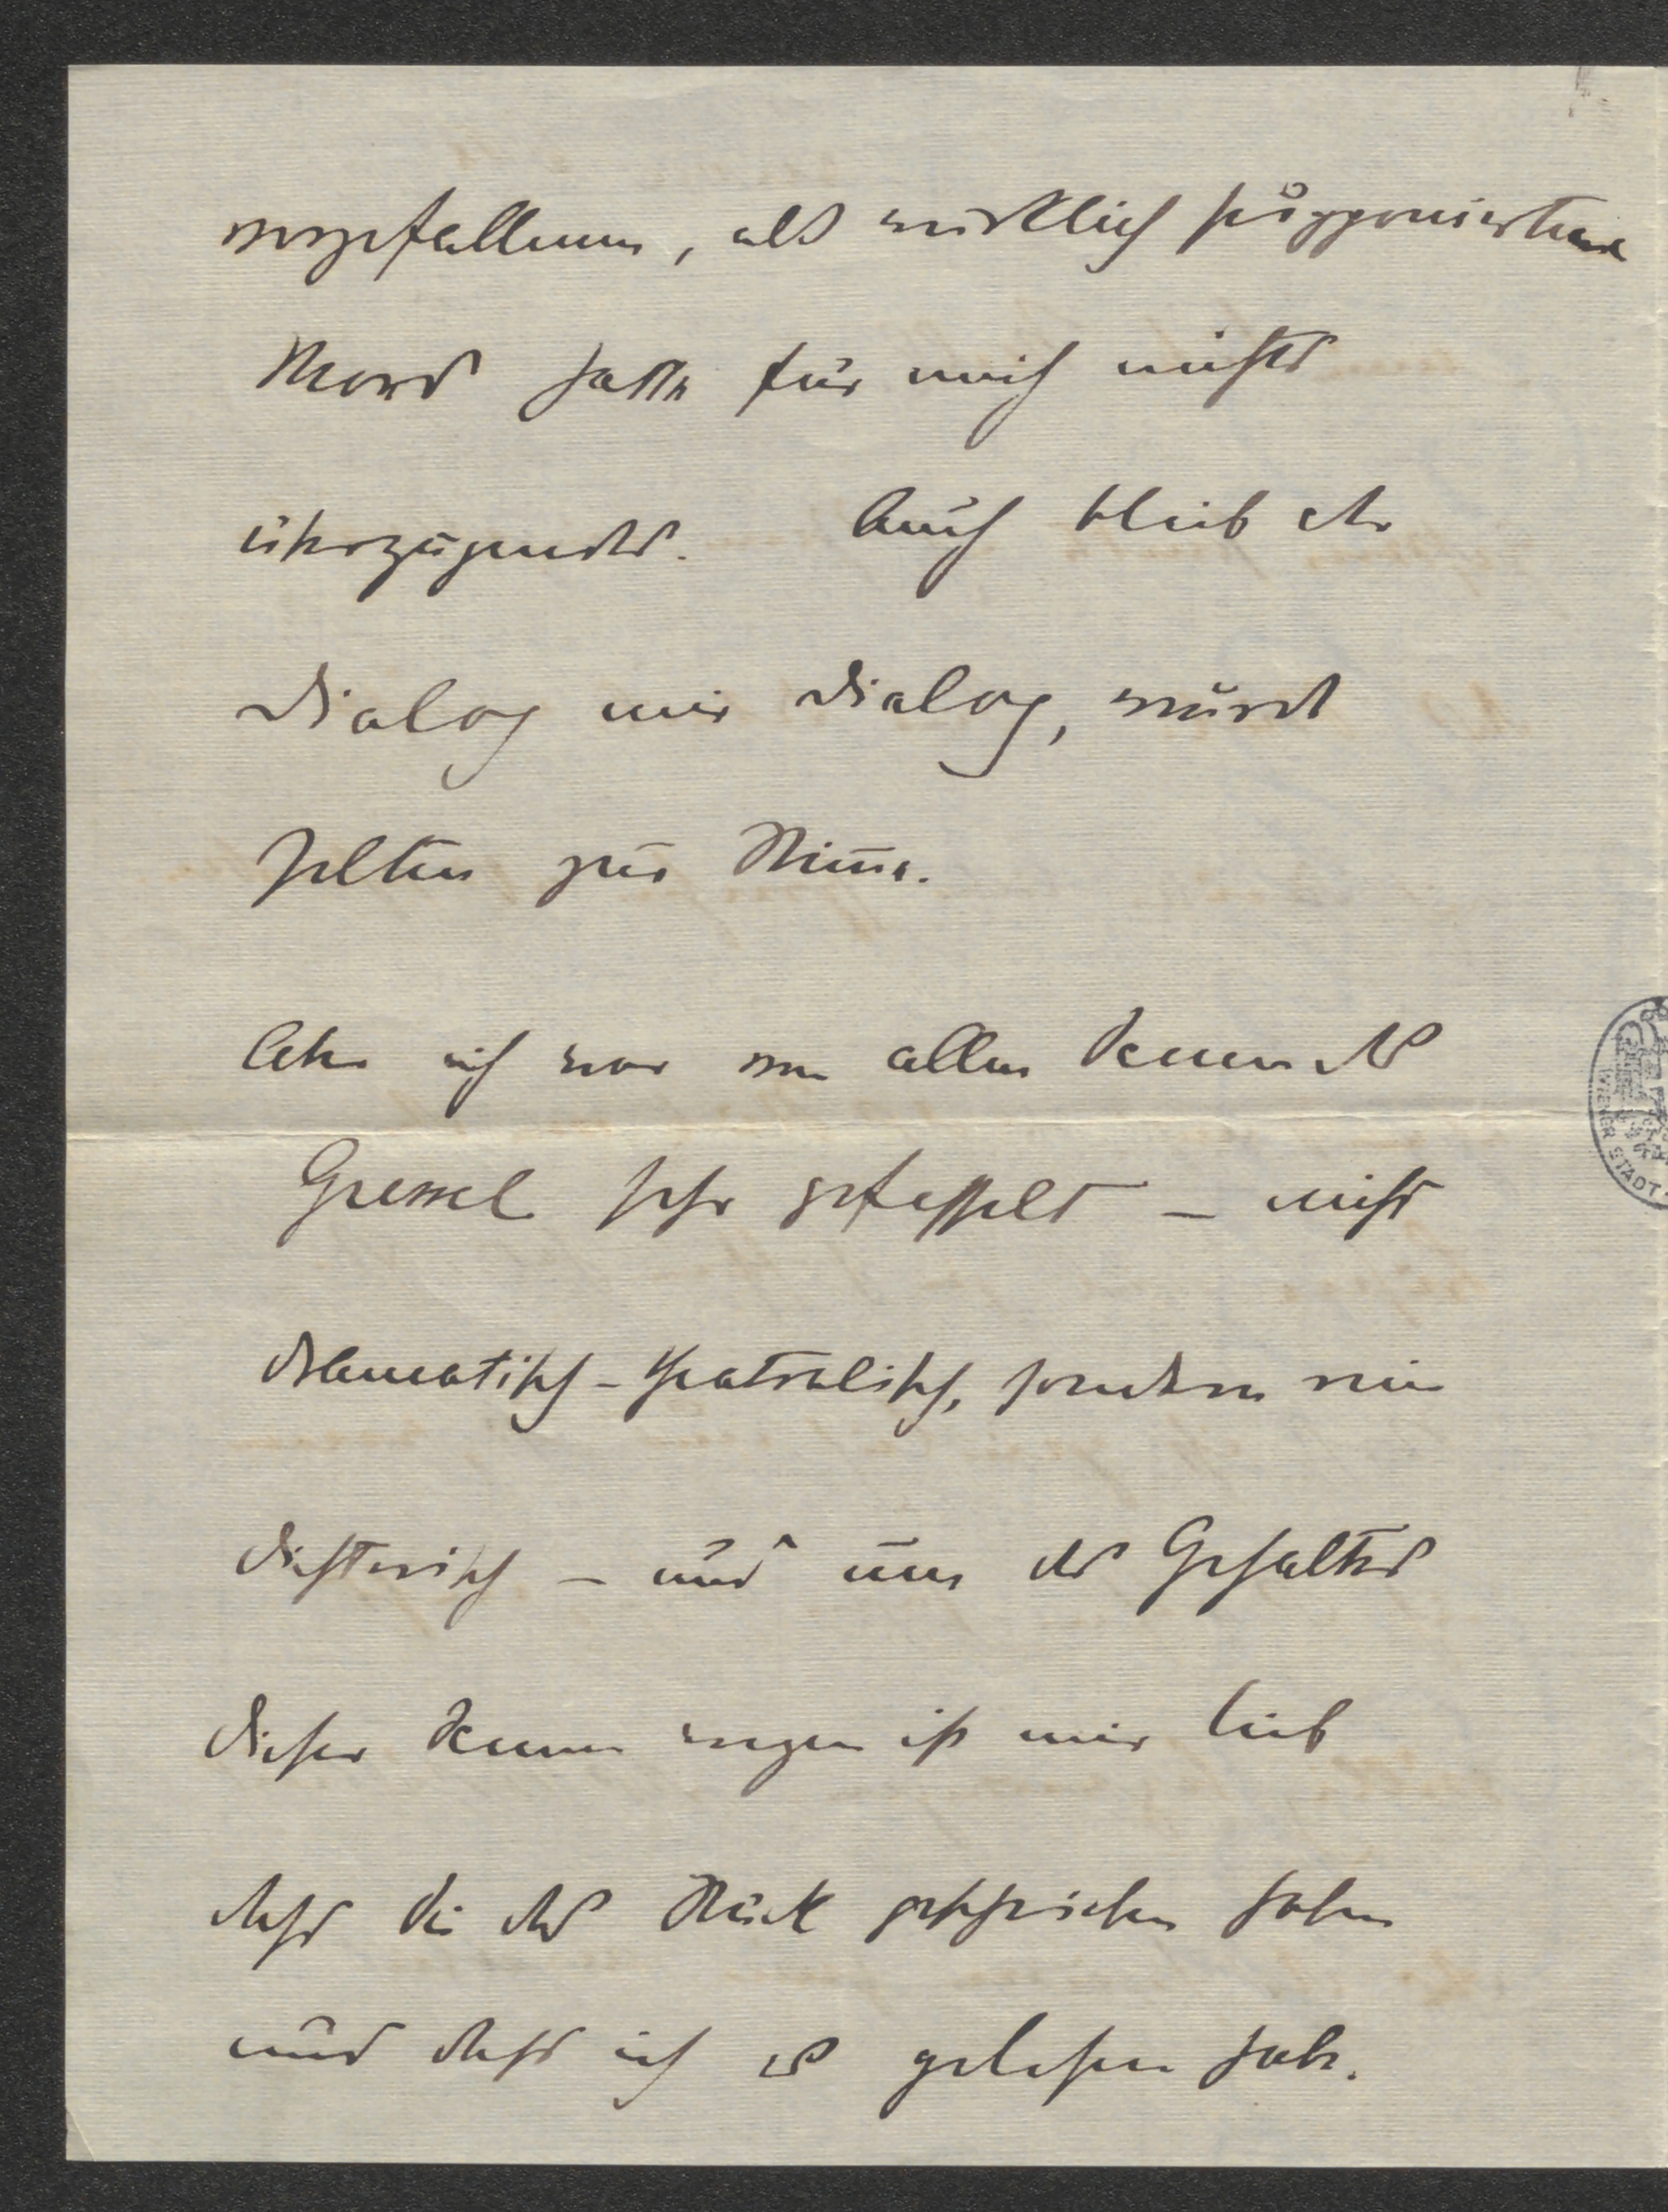 vorgefallener, als wirklich supponierter
Mord hatte für mich nichts
überzeugendes. Auch blieb der
Dialog mir Dialog, wurde
selten zur Stimme.
Aber ich war von allem
sehr gefesselt – nicht
dramatisch-theatralisch, sondern rein
dichterisch – und um des Gehaltes
dieser wegen ist mir lieb
dass Sie das Stück geschrieben haben
und dass ich es gelesen habe.
WIENER STADT